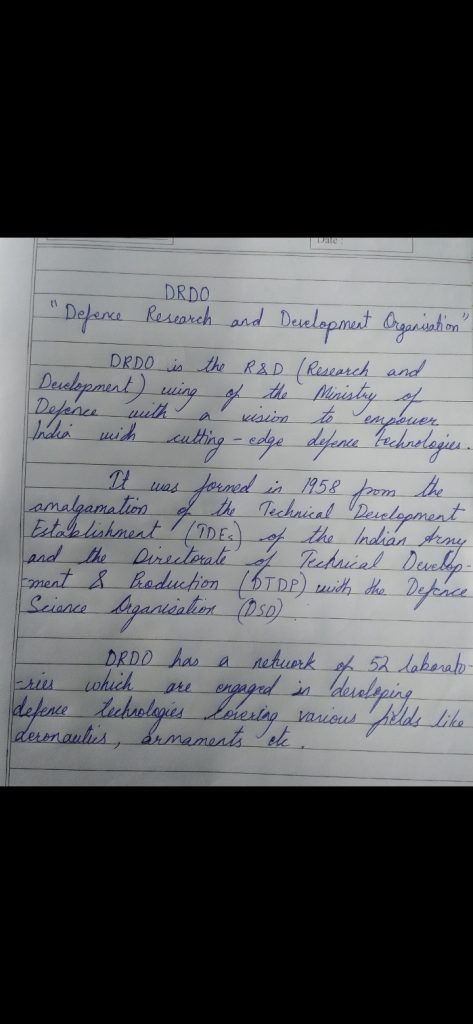 Date :
DRDO
"Defence Research and Development Organisation"
DRDO is the R&D (Research and
Development) wing of the Ministry of
Defence with a vision to empower
India with cutting-edge defence technologies.
It was formed in 1958 from the
amalgamation of the Technical Development
Establishment (TDEs) of the Indian Army
and the Directorate of Technical Develop-
-ment & Production (DTDP) with the Defence
Science Organisation (DSO)
DRDO has a network of 52 laborato-
-ries which are engaged in developing
defence technologies covering various fields like
aeronautics, armaments etc.